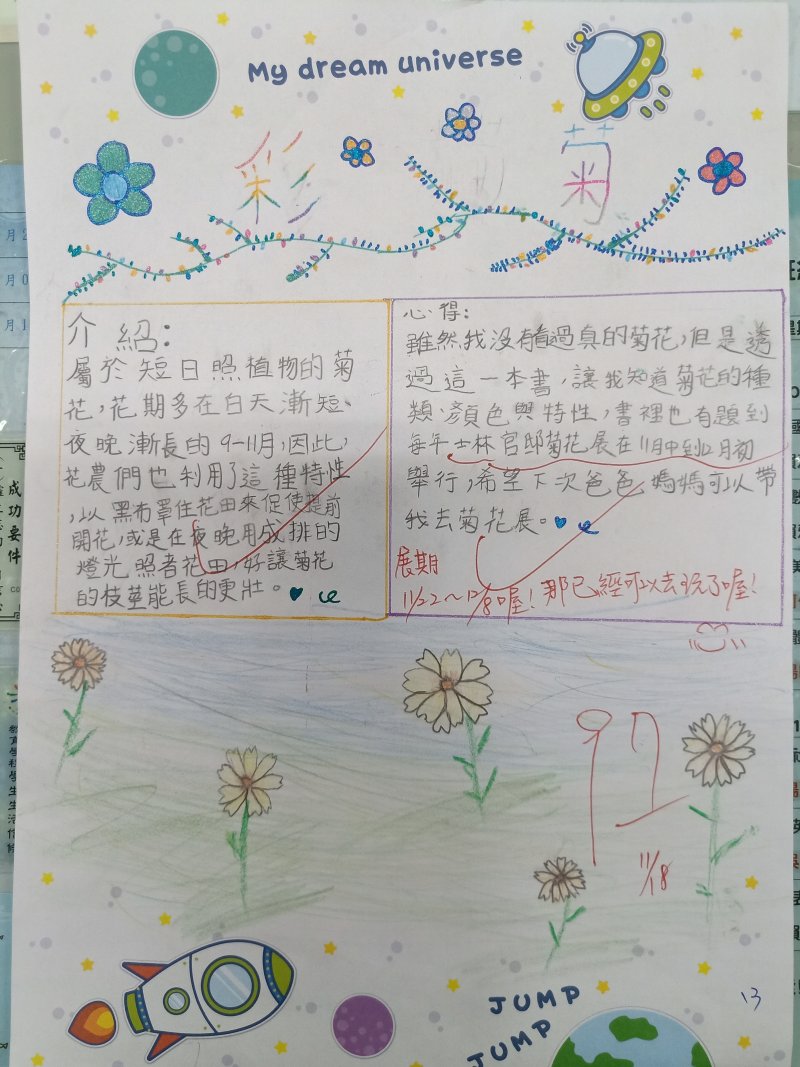 My dream universe
彩 菊
介紹:
屬於短日照植物的菊
花,花期多在白天漸短、
夜晚漸長的9-11月,因此,
花農們也利用了這種特性
,以黑布罩住花田來促使提前
開花,或是在夜晚用成排的
燈光照著花田,好讓菊花
的枝莖能長的更壯。
心得:
雖然我沒有看過真的菊花,但是透
過這一本書,讓我知道菊花的種
類、顏色與特性,書裡也有題到
每年士林官邸菊花展在11月中到12月初
舉行,希望下次爸爸媽媽可以帶
我去菊花展。
展期
11/22~12/8喔!那已經可以去玩了喔!
92
11/18
13
JUMP
JUMP
成功要件